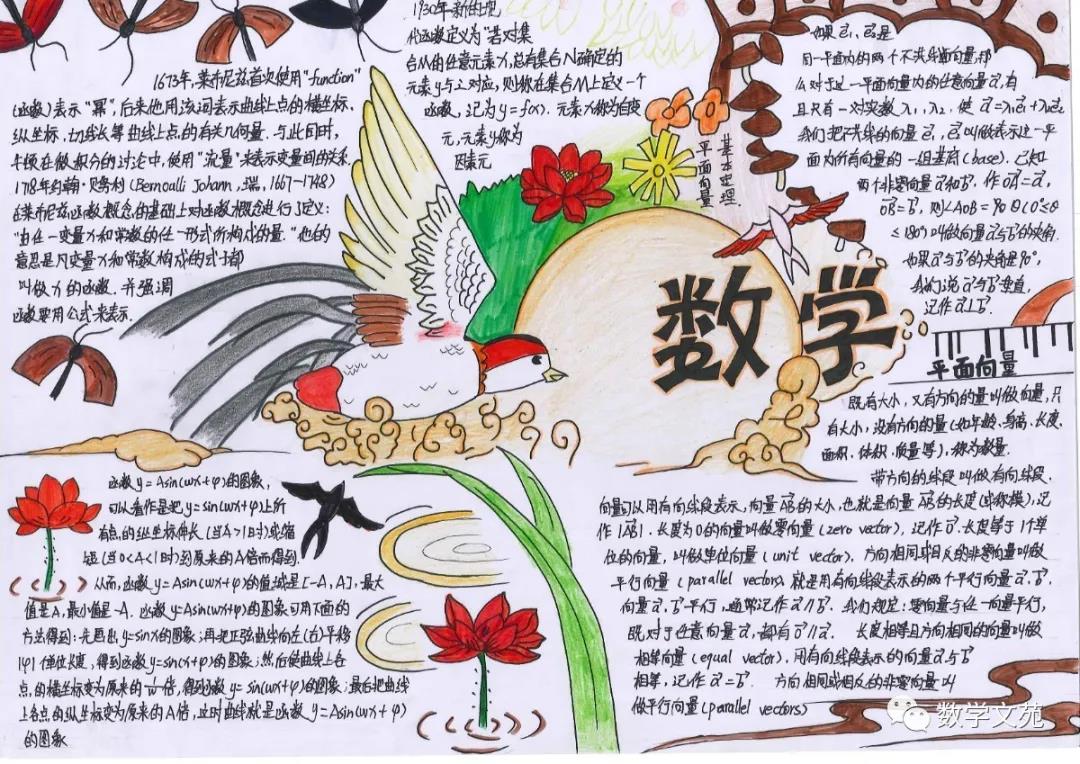 1673年,莱布尼兹首次使用"function"
(函数)表示"幂",后来他用该词表示曲线上点的横坐标、
纵坐标、切线长等曲线上点的有关几何量.与此同时,
牛顿在微积分的讨论中,使用"流量"来表示变量间的关系.
1718年约翰·贝努利(Bernoalli Johann,瑞,1667-1748)
在莱布尼兹函数概念的基础上对函数概念进行了定义:
"由任一变量x和常数的任一形式所构成的量."他的
意思是凡变量x和常数构成的式子都
叫做x的函数.并强调
函数要用公式来表示.
1930年新的现
代函数定义为"若对集
合M的任意元素x,总有集合N确定的
元素y与之对应,则称在集合M上定义一个
函数,记为y=f(x).元素x称为自变
元,元素y称为
因变元
如果e₁、e₂是
同一平面内的两个不共线向量,那
么对于这一平面内的任意向量a,有
且只有一对实数λ₁,λ₂.使a=λ₁e₁+λ₂e₂
我们把不共线的向量e₁,e₂叫做表示这一平
面内所有向量的一组基底(base).已知
两个非零向量a和b.作OA=a,
OB=b,则∠AOB=θ(0°≤θ
≤180°)叫做向量a与b的夹角.
如果a与b的夹角是90°,
我们说a与b垂直,
记作a⊥b.
平面向量
基本定理
数学
平面向量
既有大小,又有方向的量叫做向量,只
有大小,没有方向的量(如年龄、身高、长度、
面积、体积、质量等),称为数量.
带方向的线段叫做有向线段.
向量可以用有向线段表示,向量AB的大小,也就是向量AB的长度(或称模),记
作|AB|.长度为0的向量叫做零向量(zero vector),记作0.长度等于1个单
位的向量,叫做单位向量(unit vector).方向相同或相反的非零向量叫做
平行向量(parallel vectors)就是用有向线段表示的两个平行向量a、b.
向量a、b平行,通常记作a∥b.我们规定:零向量与任一向量平行,
既对于任意向量a,都有0∥a. 长度相等且方向相同的向量叫做
相等向量(equal vector),用有向线段表示的向量a与b
相等,记作a=b. 方向相同或相反的非零向量叫
做平行向量(parallel vectors)
函数y=Asin(wx+φ)的图象,
可以看作是把y=sin(wx+φ)上所
有点的纵坐标伸长(当A>1时)或缩
短(当0<A<1时)到原来的A倍而得到.
从而,函数y=Asin(wx+φ)的值域是[-A,A],最大
值是A,最小值是-A.函数y=Asin(wx+φ)的图象可用下面的
方法得到:先画出y=sinx的图象;再把正弦曲线向左(右)平移
|φ|个单位长度,得到函数y=sin(x+φ)的图象;然后使曲线上各
点的横坐标变为原来的1/w倍,得到函数y=sin(wx+φ)的图象;最后把曲线
上各点的纵坐标变为原来的A倍,这时曲线就是函数y=Asin(wx+φ)
的图象
数学文苑